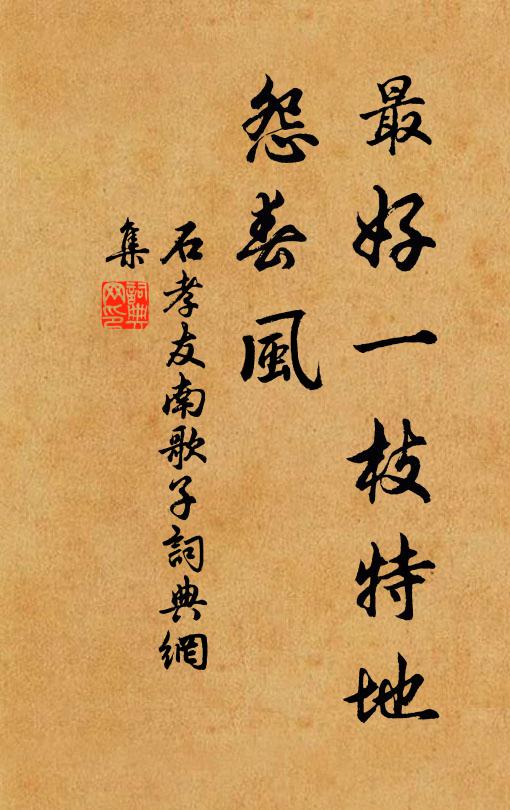 最好一枝特地
怨春風
石孝友南歌子詞典網
集
詞典網印